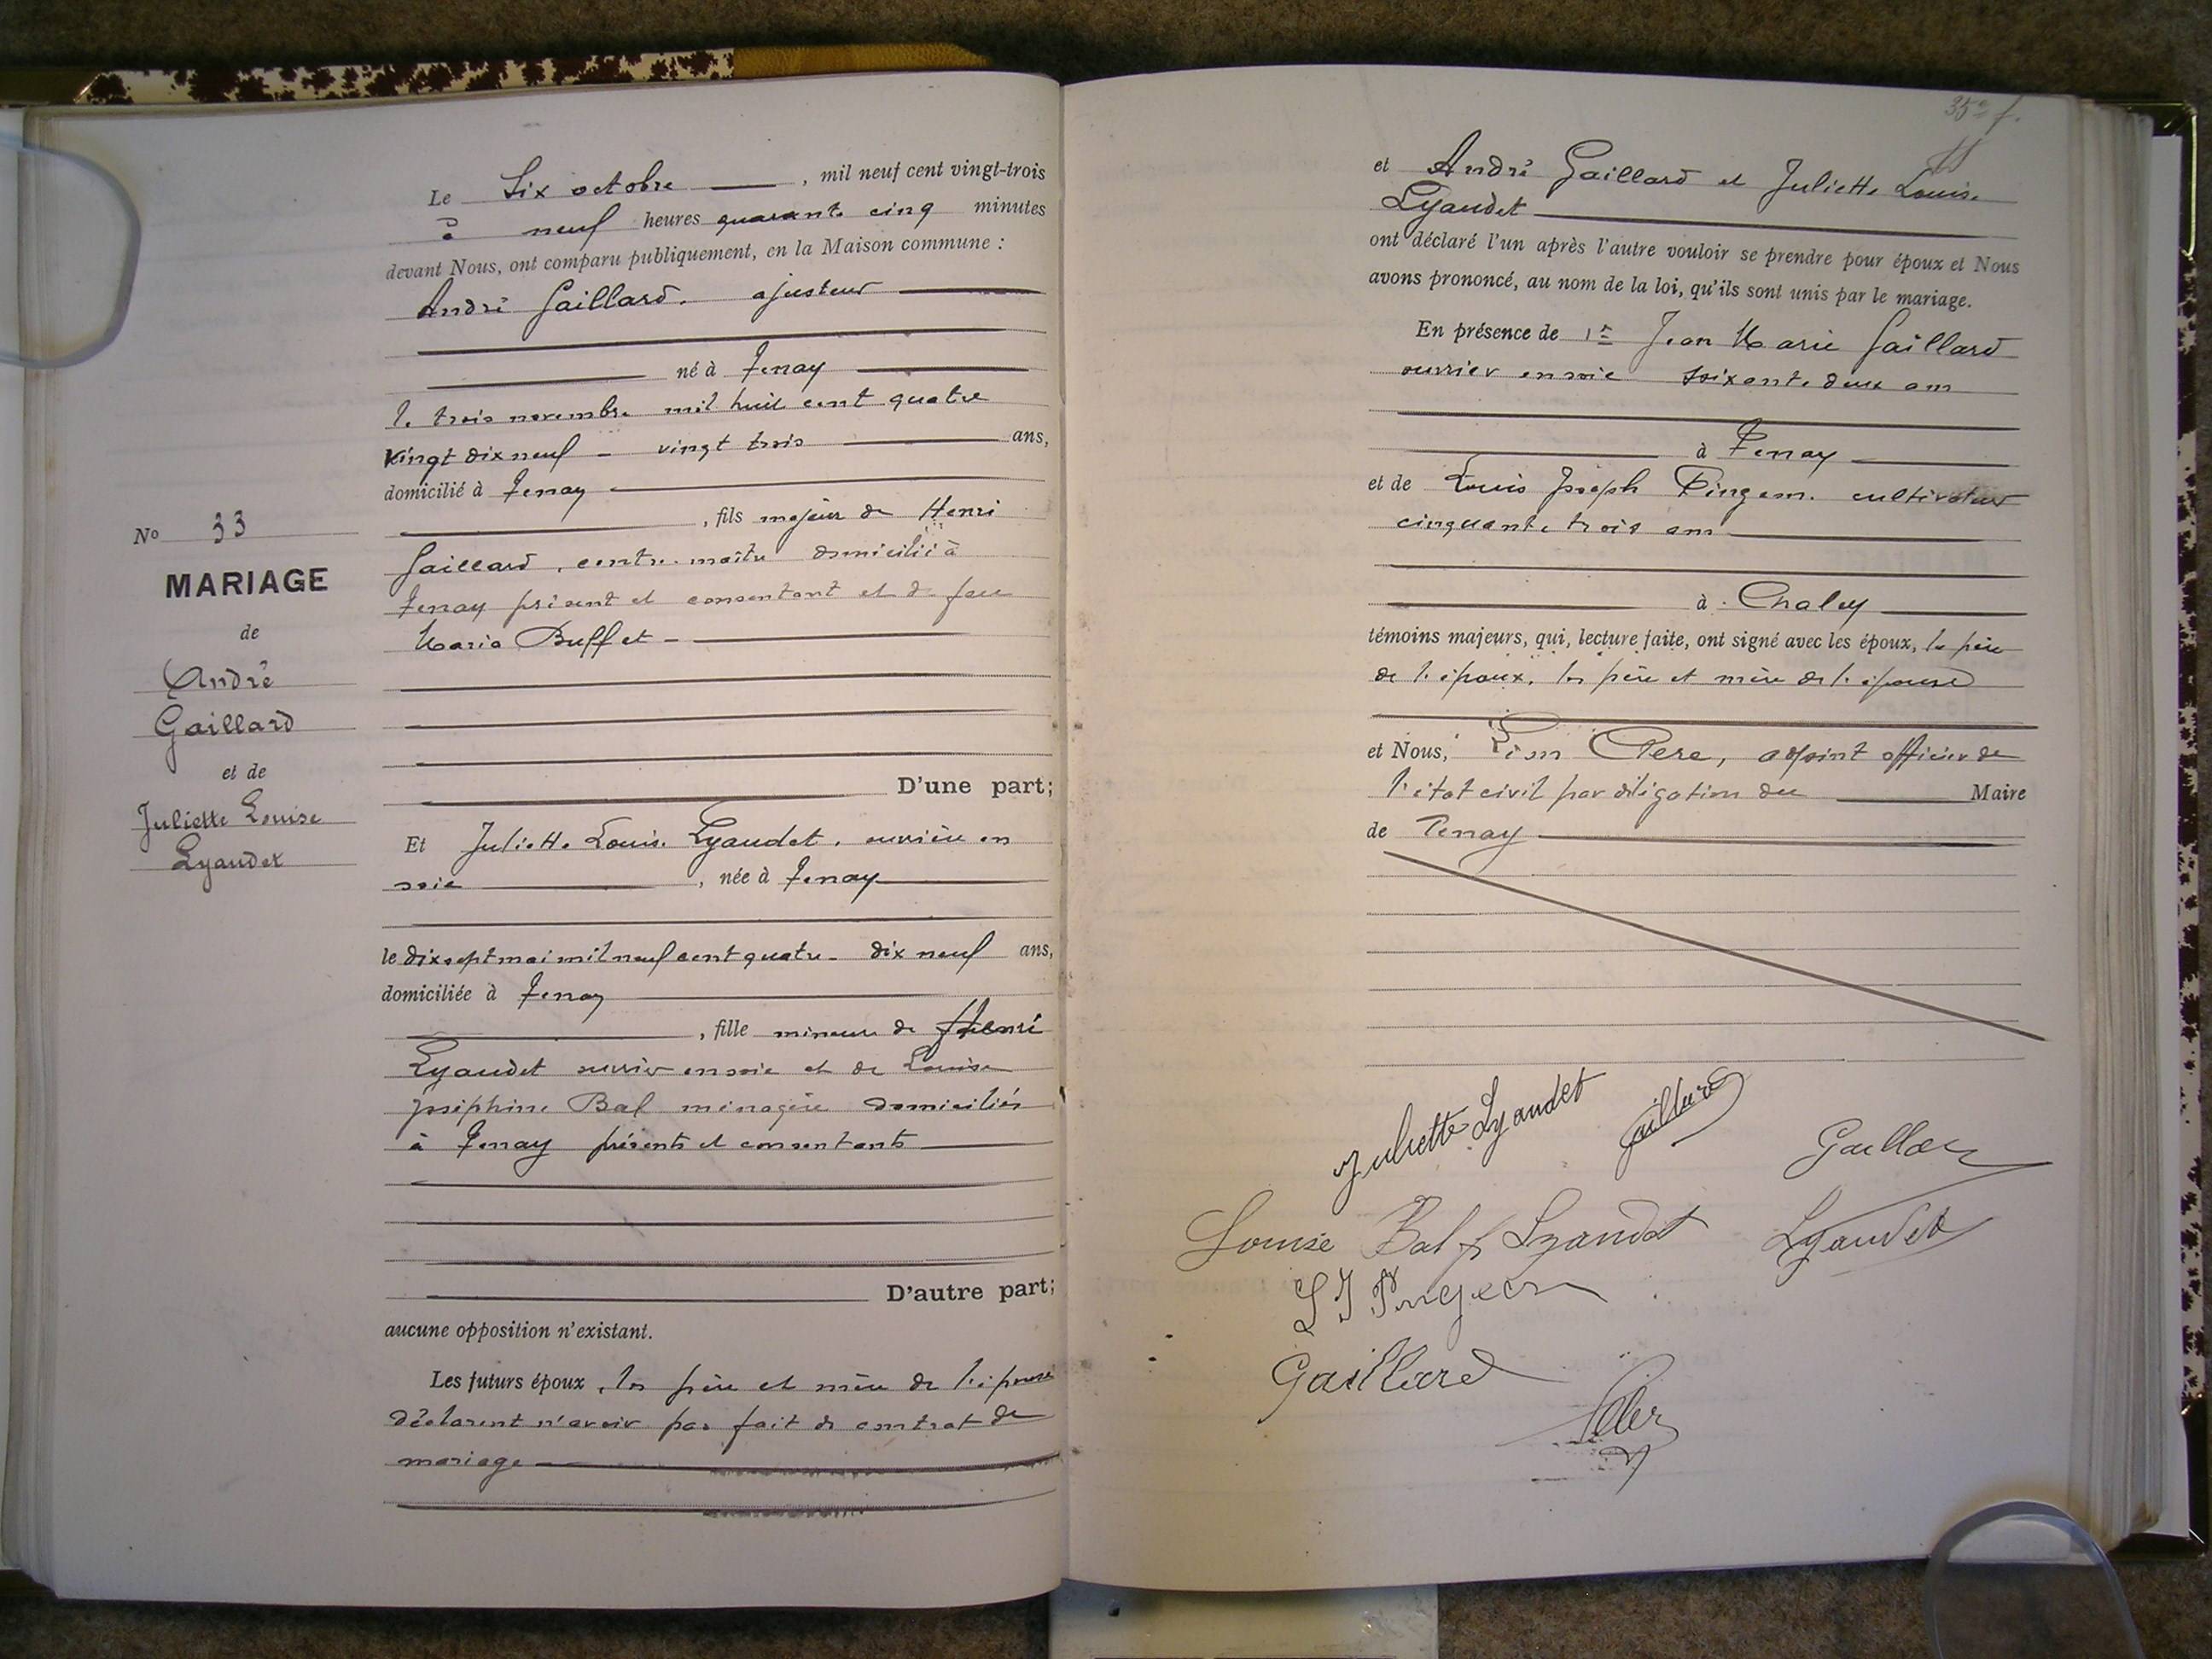 No 33
MARIAGE
de
André
Gaillard
et de
Juliette Louise
Lyaudet
Le Six octobre, mil neuf cent vingt-trois
à neuf heures quarante cinq minutes
devant Nous, ont comparu publiquement, en la Maison commune :
André Gaillard. ajusteur
né à Tenay
le trois novembre mil huit cent quatre
vingt dix neuf - vingt trois ans,
domicilié à Tenay
, fils majeur de Henri
Gaillard, contre-maître domicilié à
Tenay présent et consentant et de feu
Maria Buffet -
D'une part;
Et Juliette Louise Lyaudet, ouvrière en
soie, née à Tenay
le dix sept mai mil neuf cent quatre - dix neuf ans,
domiciliée à Tenay
, fille mineure de Henri
Lyaudet ouvrier en soie et de Louise
Joséphine Bal ménagère domiciliés
à Tenay présents et consentants
D'autre part;
aucune opposition n'existant.
Les futurs époux, les père et mère de l'épouse
déclarent n'avoir pas fait de contrat de
mariage
35e f.
et André Gaillard et Juliette Louise
Lyaudet
ont déclaré l'un après l'autre vouloir se prendre pour époux et Nous
avons prononcé, au nom de la loi, qu'ils sont unis par le mariage.
En présence de Jean Marie Gaillard
ouvrier en soie soixante deux ans
à Tenay
et de Louis Joseph Pingeon. cultivateur
cinquante trois ans
à Chaley
témoins majeurs, qui, lecture faite, ont signé avec les époux, le père
de l'époux, les père et mère de l'épouse
et Nous, adjoint officier de
l'état civil par délégation du Maire
de Tenay
Juliette Lyaudet Gaillard
Gaillard
Louise Bal f Lyaudet Lyaudet
L J Pingeon
Gaillard